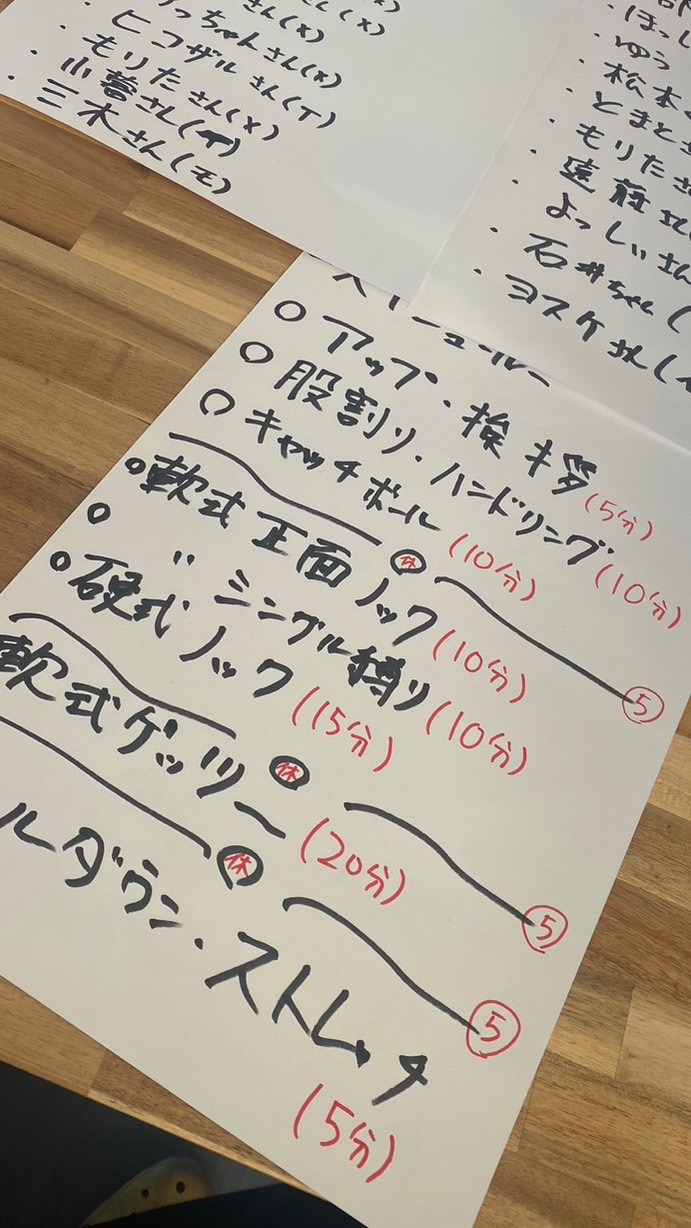 さん(x)
さん(x)
っちゃんさん(x)
・ヒコザルさん(T)
・もりたさん(x)
・小暮さん(T)
・三木さん(モ)
・ほっし
・ゆう
・松本
・とまとさ
・もりたさ
・遠藤さん
・よっしぃさん
・石井ちゃん(
・ヨスケさん(
スケジュール
○アップ・挨拶(5分)
○股割り・ハンドリング(10分)
○キャッチボール(10分)
休 ⑤
○軟式正面ノック(10分)
○〃シングル縛り(10分)
○硬式ノック(15分)
休 ⑤
軟式ゲッツー(20分)
休 ⑤
ルダウン・ストレッチ
(5分)